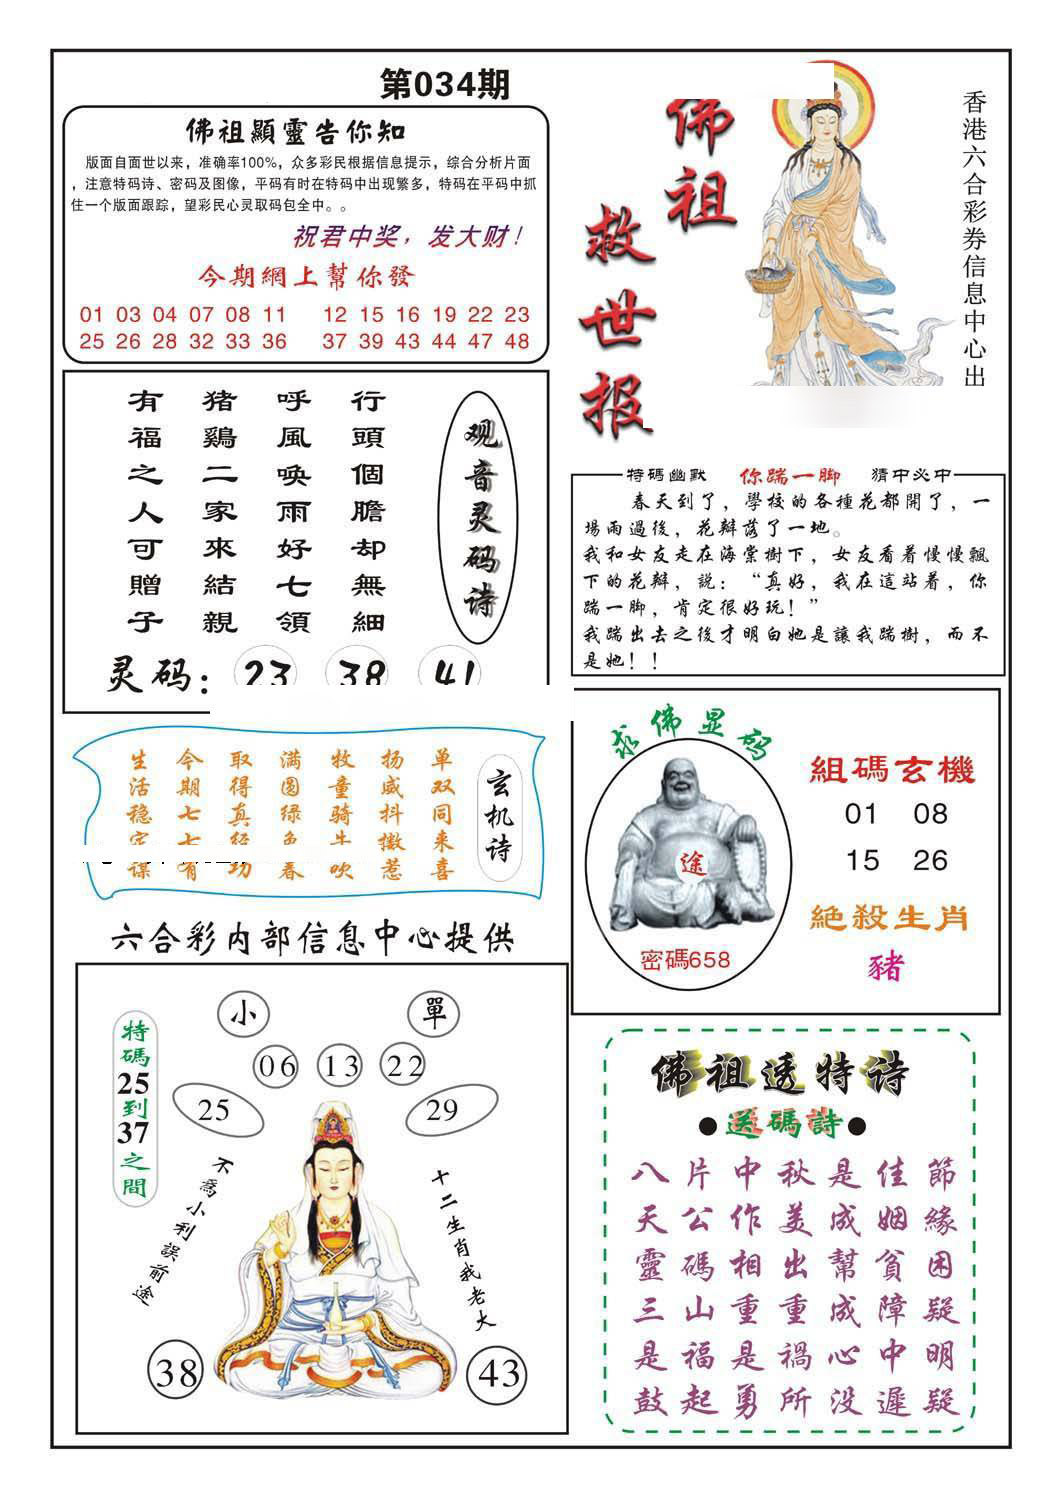 第034期
佛祖顯靈告你知
版面自面世以来，准确率100%，众多彩民根据信息提示，综合分析片面
，注意特码诗、密码及图像，平码有时在特码中出现繁多，特码在平码中抓
住一个版面跟踪，望彩民心灵取码包全中。。
祝君中奖，发大财！
今期網上幫你發
01 03 04 07 08 11 12 15 16 19 22 23
25 26 28 32 33 36 37 39 43 44 47 48
佛祖
救世报
香港六合彩券信息中心出
观音灵码诗
行頭個膽却無細
呼風唤雨好七領
猪鷄二家來結親
有福之人可贈子
灵码：23 38 41
特碼幽默 你踹一脚 猜中必中
春天到了，學校的各種花都開了，一
場雨過後，花辯落了一地。
我和女友走在海棠樹下，女友看着慢慢飄
下的花辯，説：“真好，我在這站着，你
踹一脚，肯定很好玩！”
我踹出去之後才明白她是讓我踹樹，而不
是她！！
玄机诗
单双同来喜
扬威抖擞惹
牧童骑牛吹
满圆绿色春
取得真经功
今期七七有
生活稳定谋
求佛显码
途
密碼658
組碼玄機
01 08
15 26
絶殺生肖
豬
六合彩内部信息中心提供
小 單
06 13 22
25 29
特碼25到37之間
不為小利誤前途
十二生肖我老大
38 43
佛祖透特诗
●送碼詩●
八片中秋是佳節
天公作美成姻緣
靈碼相出幫貧困
三山重重成障疑
是福是禍心中明
鼓起勇所没遲疑